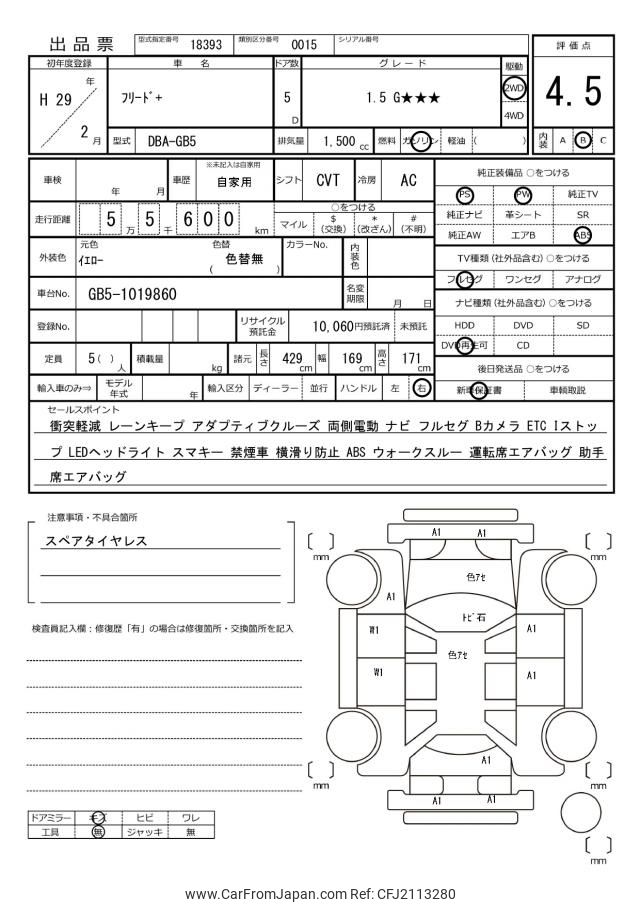 出品票 型式指定番号 18393 類別区分番号 0015 シリアル番号
評価点
4.5
内装 A B C
初年度登録 車名 ドア数 グレード 駆動
H 29 年 2 月
フリード+ 5 D 1.5 G★★★ 2WD 4WD
型式 DBA-GB5 排気量 1,500 cc 燃料 ガソリン 軽油 ( )
車検 年 月 車歴 ※未記入は自家用 自家用 シフト CVT 冷房 AC
走行距離 5 万 5 千 6 0 0 km
○をつける
マイル $(交換) *(改ざん) #(不明)
外装色 元色 イエロー 色替 ( 色替無 ) カラーNo. 内装色
車台No. GB5-1019860 名変期限 月 日
登録No. リサイクル預託金 10,060円預託済 未預託
定員 5( ) 人 積載量 kg 諸元 長さ 429 cm 幅 169 cm 高さ 171 cm
輸入車のみ⇒ モデル年式 年 輸入区分 ディーラー 並行 ハンドル 左 右
純正装備品 ○をつける
PS PW 純正TV
純正ナビ 革シート SR
純正AW エアB ABS
TV種類(社外品含む) ○をつける
フルセグ ワンセグ アナログ
ナビ種類(社外品含む) ○をつける
HDD DVD SD
DVD再生可 CD
後日発送品 ○をつける
新車保証書 車輌取説
セールスポイント
衝突軽減 レーンキープ アダプティブクルーズ 両側電動 ナビ フルセグ Bカメラ ETC Iストッ
プ LEDヘッドライト スマキー 禁煙車 横滑り防止 ABS ウォークスルー 運転席エアバッグ 助手
席エアバッグ
注意事項・不具合箇所
スペアタイヤレス
検査員記入欄：修復歴「有」の場合は修復箇所・交換箇所を記入
ドアミラー キズ ヒビ ワレ
工具 無 ジャッキ 無
A1 A1
mm mm
色アセ
A1
トビ石
W1 A1
色アセ
W1 A1
A1
mm mm
A1 A1
mm
www.CarFromJapan.com Ref: CFJ2113280